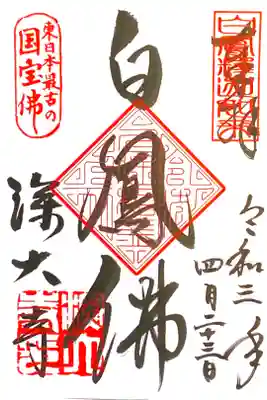 奉拝
令和三年
四月二十三日
白鳳佛
東日本最古の
国宝佛
深大寺